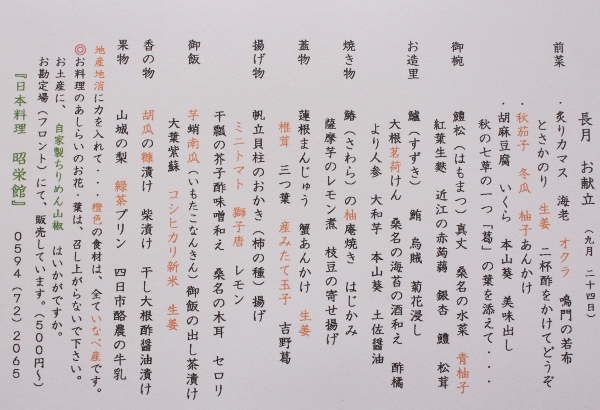 長月　お献立　（九月　二十四日）
前菜　・炙りカマス　海老　オクラ　鳴門の若布
ときかのり　生姜　二杯酢をかけてどうぞ
・秋茄子　冬瓜　柚子あんかけ
・胡麻豆腐　いくら　本山葵　美味出し
秋の七草の一つ「葛」の葉を添えて・・・
御椀　鱧松（はもまつ）真丈　桑名の水菜　青柚子
紅葉生麩　近江の赤蒟蒻　銀杏　鱧　松茸
お造里　鱸（すずき）　鮪　烏賊　菊花浸し
大根茗荷けん　桑名の海苔の酒和え　酢橘
より人参　大和芋　本山葵　土佐醤油
焼き物　鰆（さわら）の柚庵焼き　はじかみ
薩摩芋のレモン煮　枝豆の寄せ揚げ
蓋物　蓮根まんじゅう　蟹あんかけ　生姜
椎茸　三つ葉　産みたて玉子　吉野葛
揚げ物　帆立貝柱のおかき（柿の種）揚げ
ミニトマト　獅子唐　レモン
干瓢の芥子酢味噌和え　桑名の木耳　セロリ
御飯　芋蛸南瓜（いもたこなんきん）御飯の出し茶漬け
大葉紫蘇　コシヒカリ新米　生姜
香の物　胡瓜の糠漬け　柴漬け　干し大根酢醤油漬け
果物　山城の梨　緑茶プリン　四日市酪農の牛乳
地産地消に力を入れて・・・橙色の食材は、全ていなべ産です。
◎お料理のあしらいのお花・葉は、召し上がらないで下さい。
お土産に、　自家製ちりめん山椒　はいかがですか。
お勘定場（フロント）にて、販売しています。（５００円～）
『日本料理　昭栄館』　０５９４（７２）２０６５